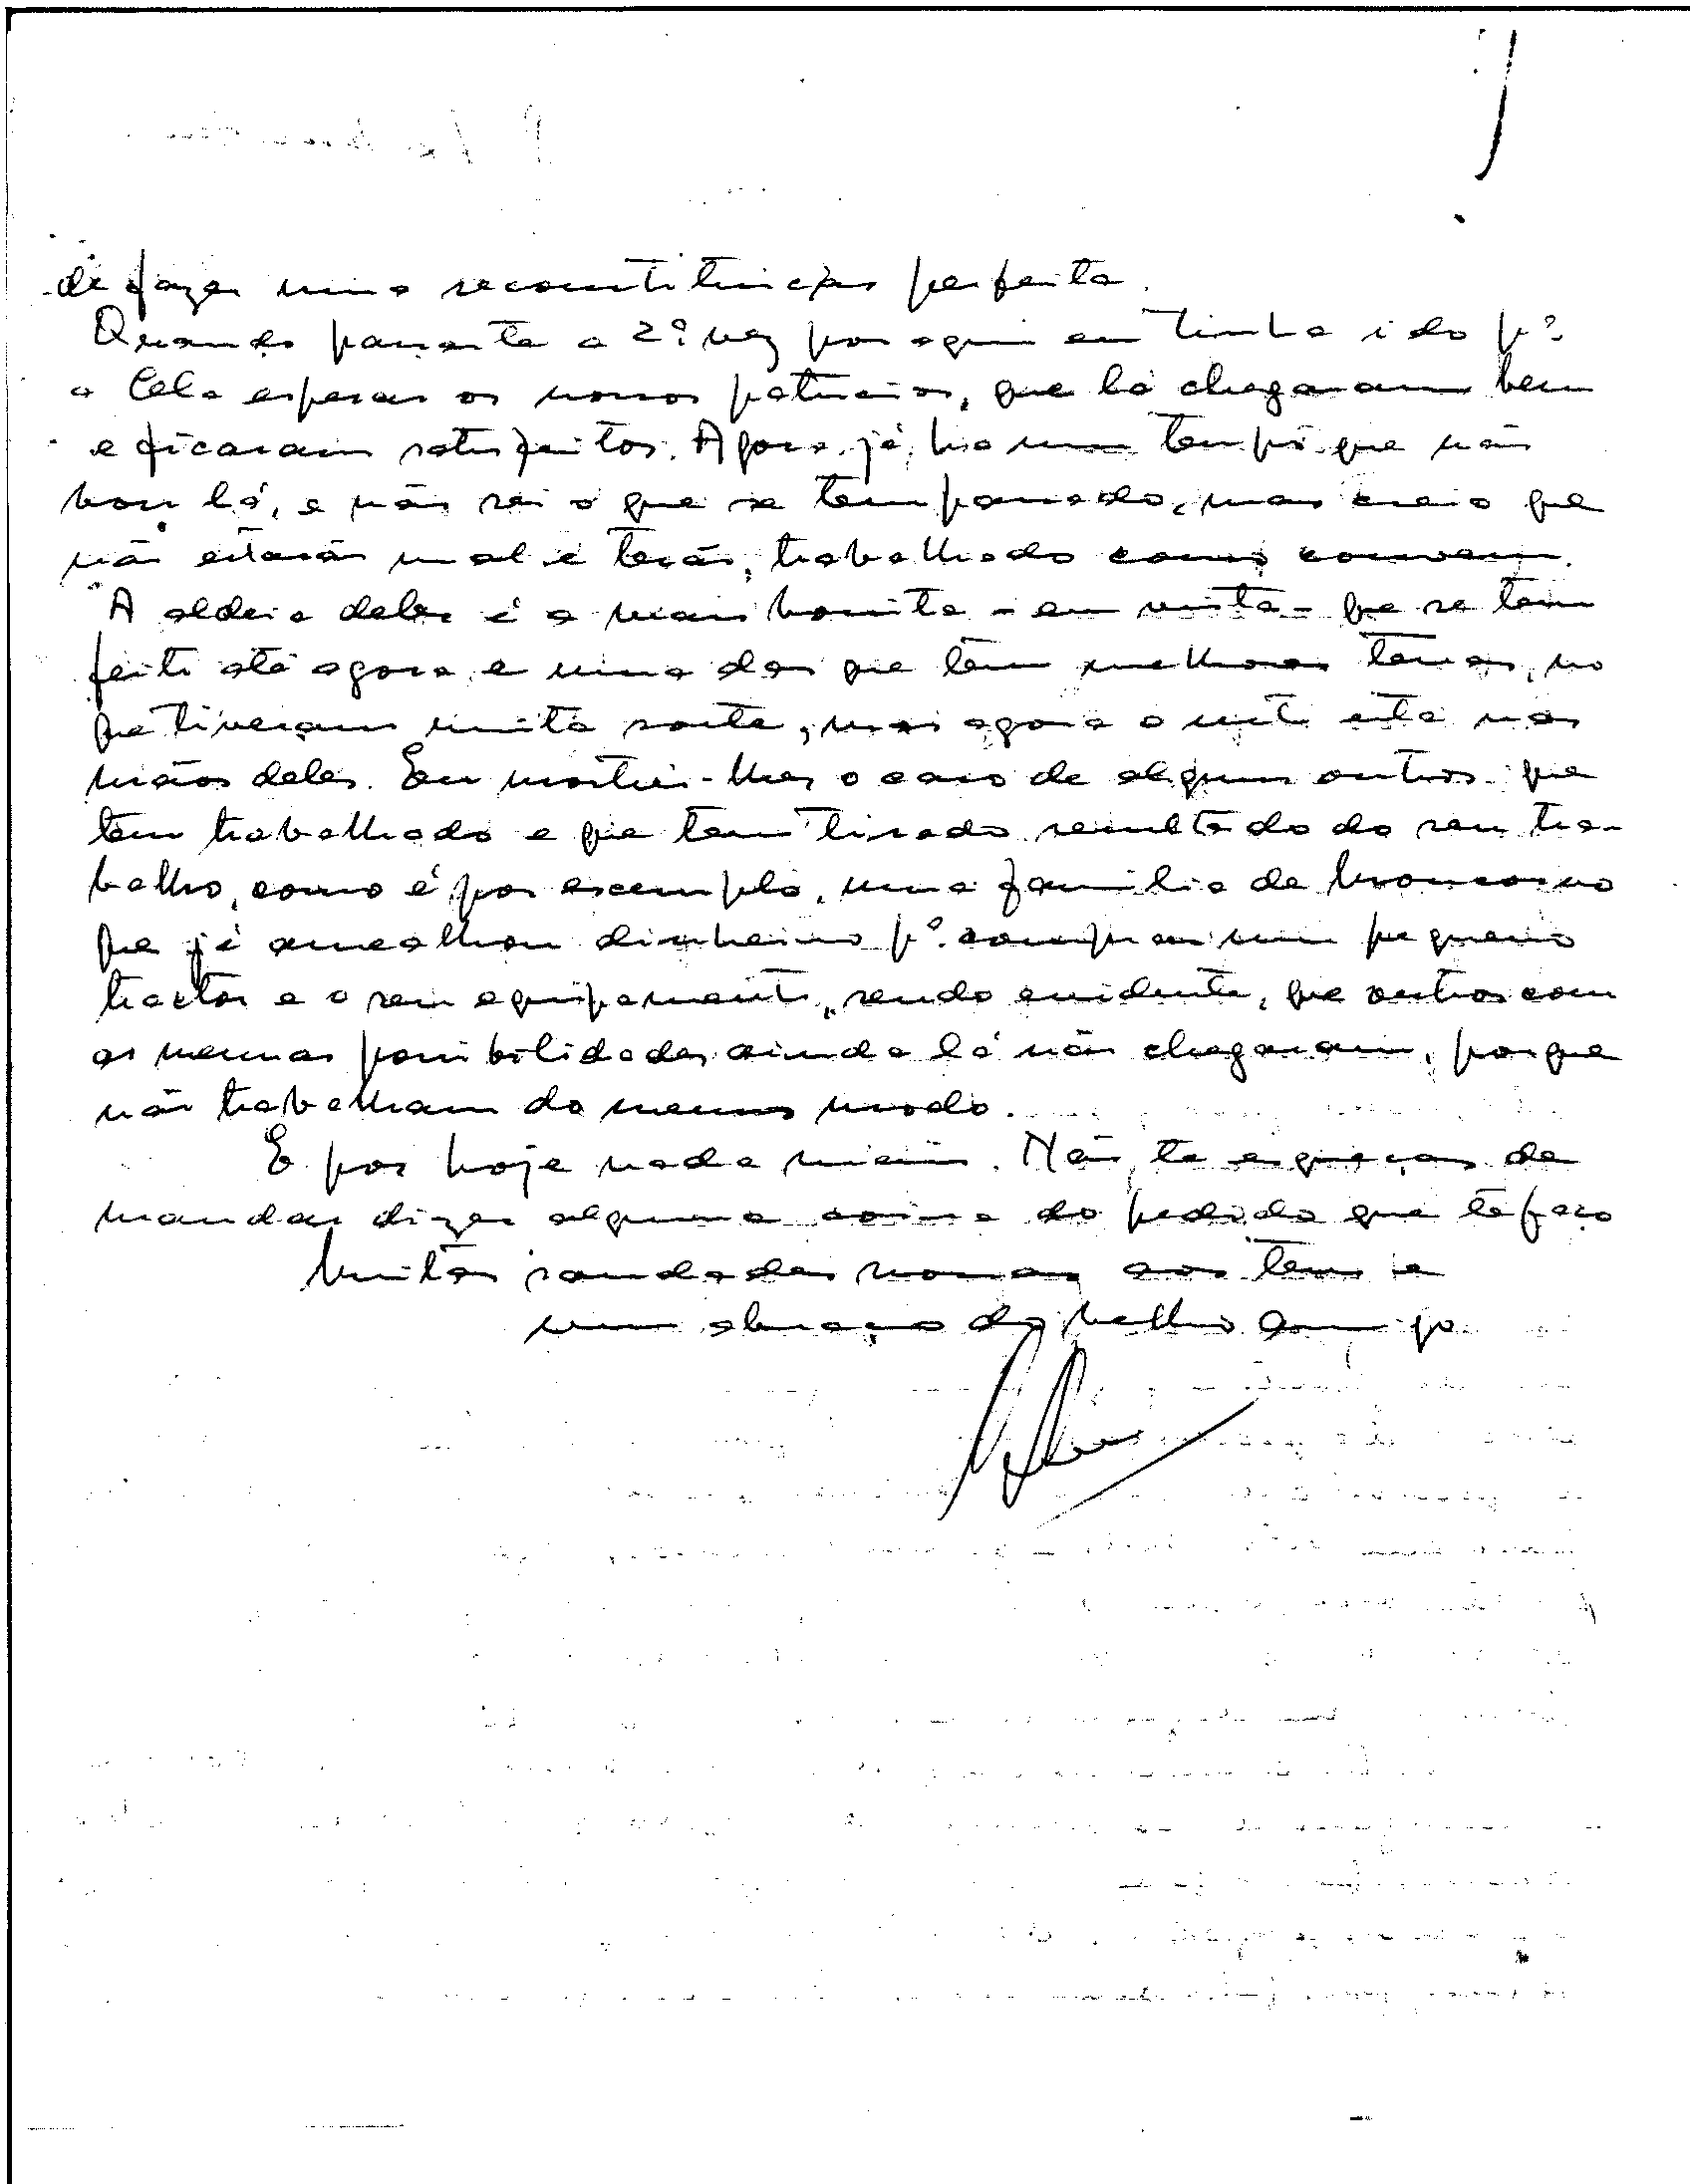 de fazer uma reconstituição perfeita.
Quando passaste a 2ª vez por aqui eu tinha ido pª
a Cela esperar os nossos patricios, que lá chegaram bem
e ficaram satisfeitos. Agora já há um tempo que não
vou lá, e não sei o que se tem passado, mas creio que
não estarão mal e terão, trabalhado como convem.
A aldeia deles é a mais bonita - em vista - que se tem
feito até agora e uma das que têm melhores terras, no
que tiveram muita sorte, mas agora o mto está nas
mãos deles. Eu mostrei-lhes o caso de alguns outros que
tem trabalhado e que tem tirado resultado do seu tra-
balho, como é por exemplo, uma familia de
que já amealhou dinheiro pª comprar um pequeno
tractor e o seu equipamento, sendo evidente, que outros com
as mesmas possibilidades ainda lá não chegaram, porque
não trabalham do mesmo modo.
E por hoje nada mais. Não te esqueças de
mandar dizer alguma coisa do pedido que te faço
Muitas saudades nossas aos teus e
um abraço do velho amigo